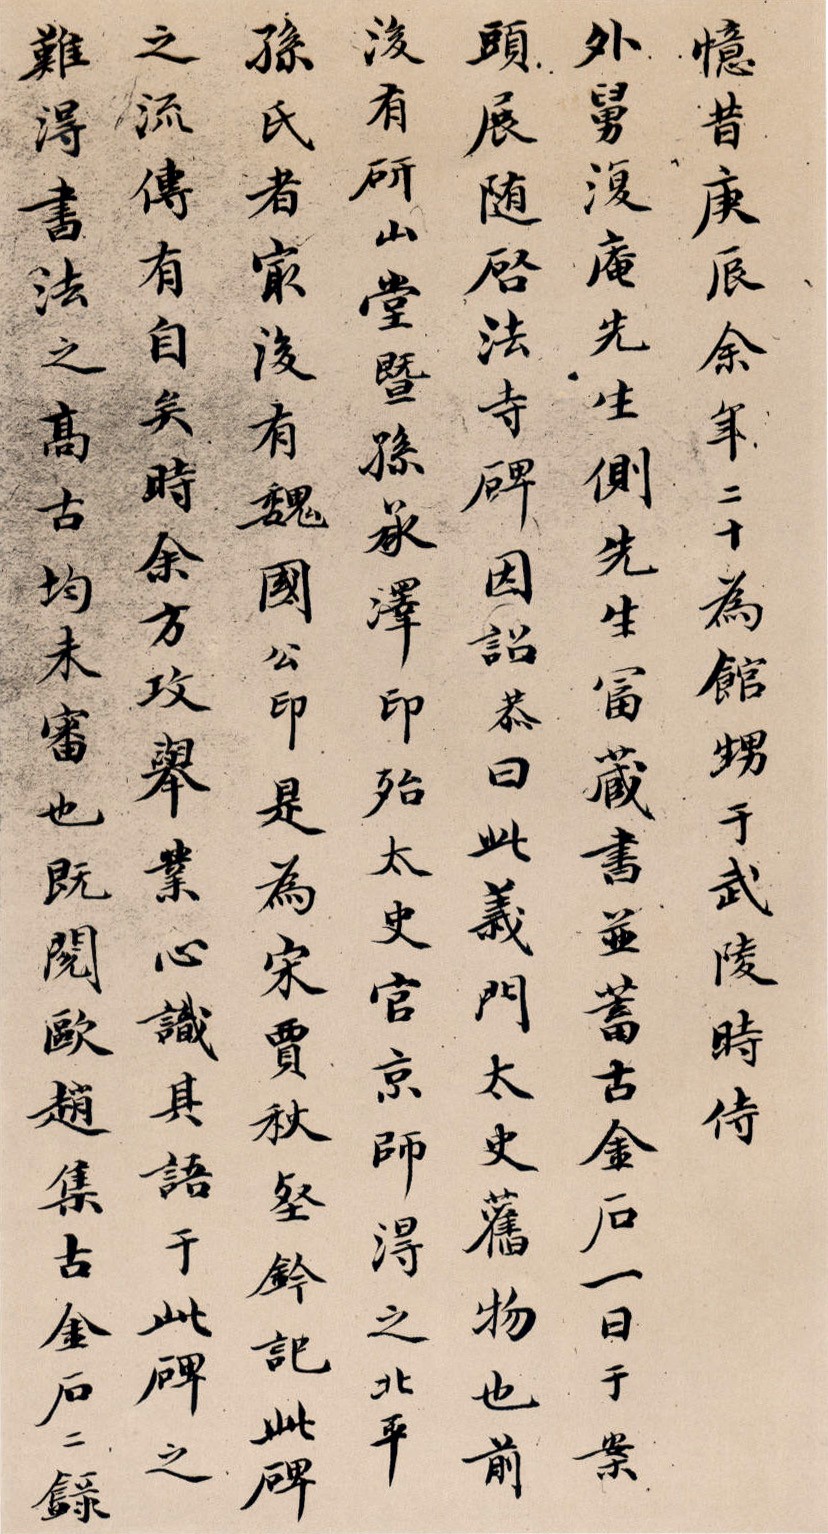 憶昔庚辰余年二十為館甥于武陵時侍
外舅復庵先生側先生富藏書並蓄古金石一日于案
頭展随啓法寺碑因詔恭曰此義門太史舊物也前
後有研山堂暨孫承澤印殆太史官京師得之北平
孫氏者冣後有魏國公印是為宋賈秋壑鈐記此碑
之流傳有自矣時余方攻舉業心識其語于此碑之
難得書法之高古均未審也既閱歐趙集古金石二錄